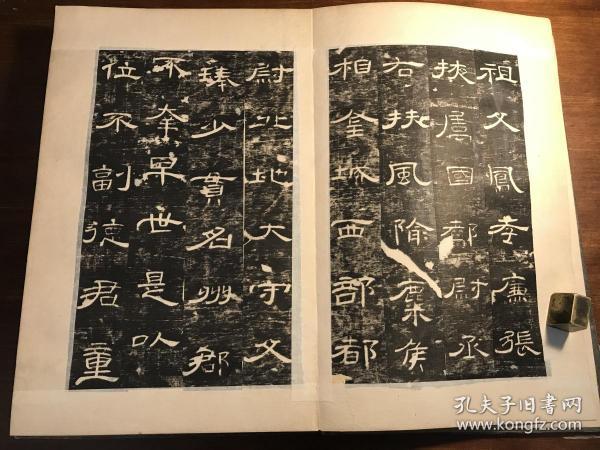 祖父鳳孝廉張
掖屬國都尉丞
右扶風隃麋侯
相金城西部都
尉北地大守父
琫少貫名州郡
不幸早世是以
位不副德君童
孔夫子旧书网
www.kongfz.com